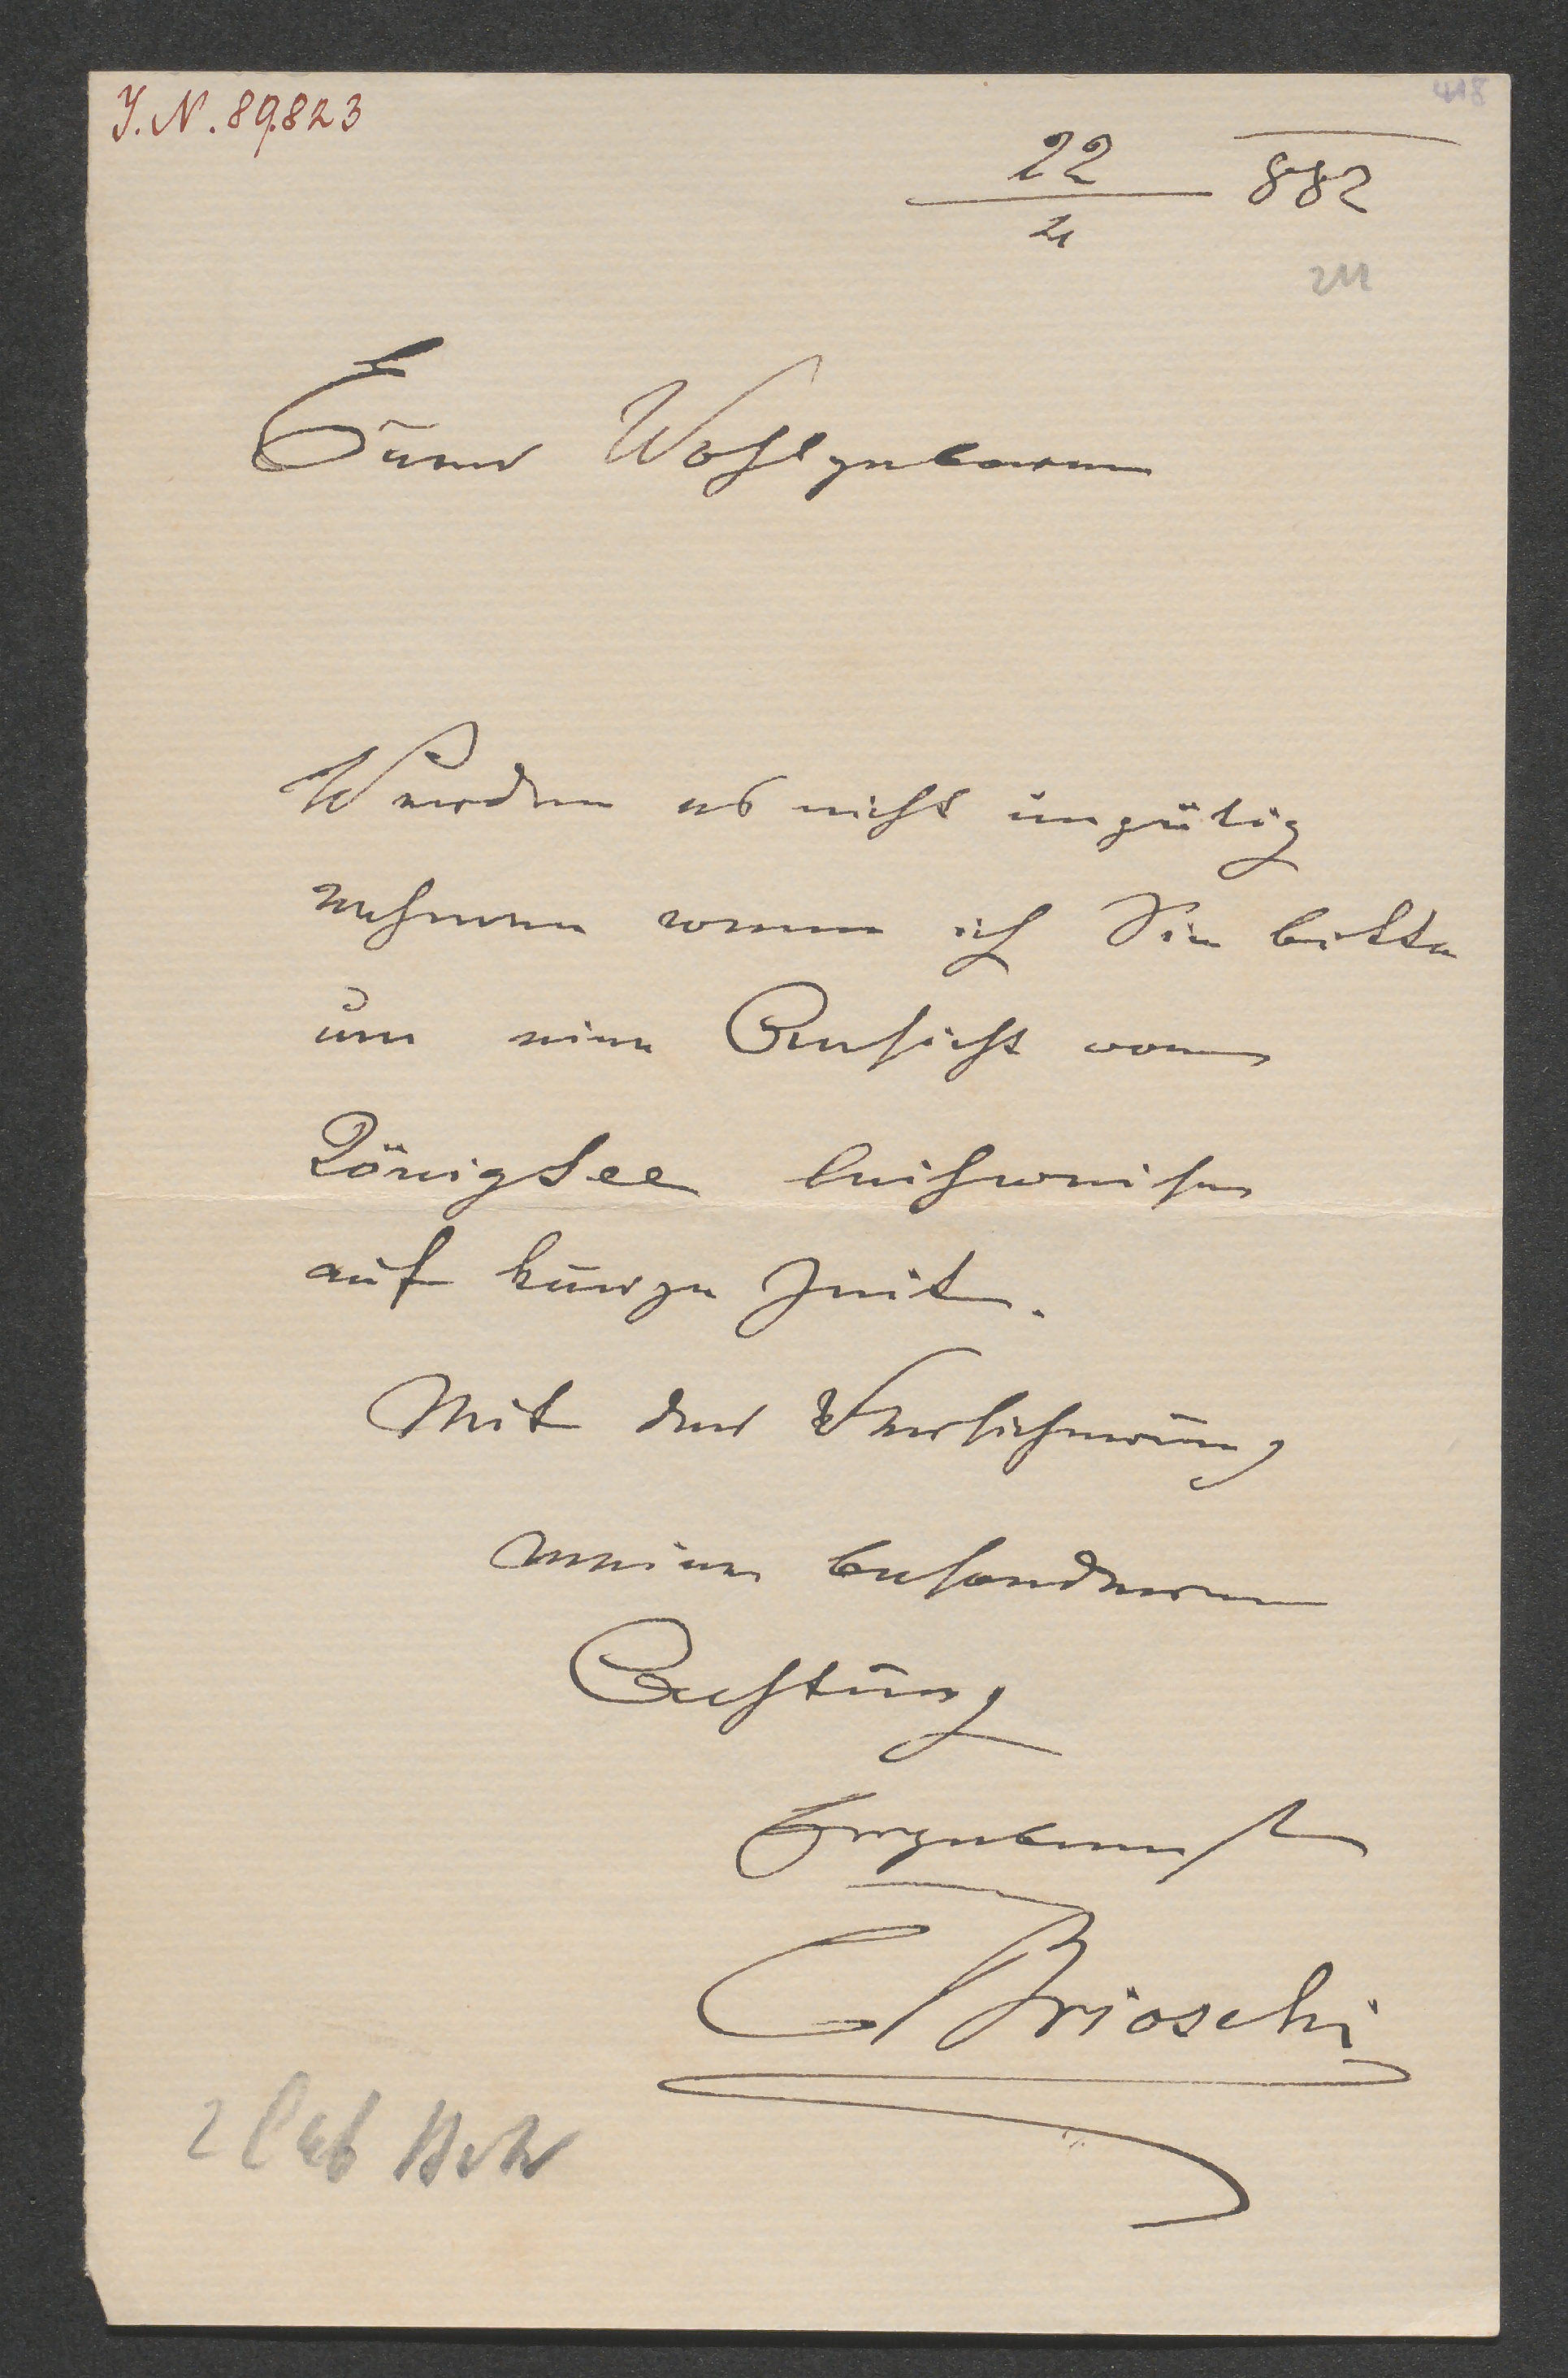 J.N. 89823
418
22 882
4
211
Euer Wohlgeboren
Werden es nicht ungütig
nehmen wenn ich Sie bitte
um eine Ansicht vom
Königsee leihweise
auf kurze Zeit.
Mit der Versicherung
meiner besonderen
Achtung
Ergebenst
C Brioschi
2